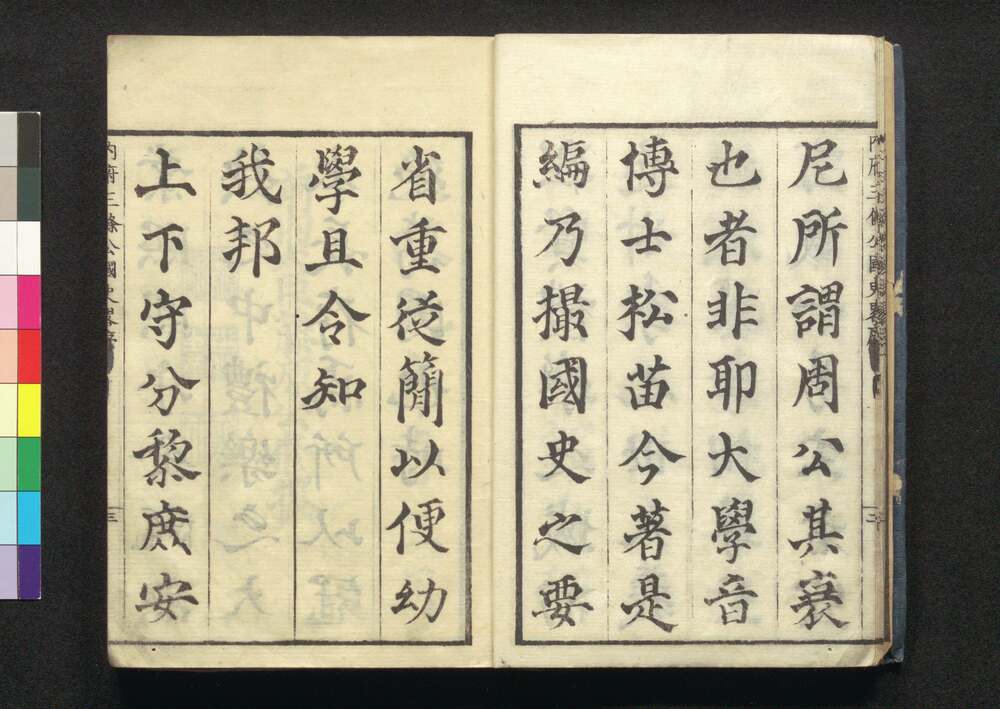 尼所謂周公其衰
也者非耶大學音
博士松苗今著是
編乃撮國史之要
省重從簡以便幼
學且令知
我邦
上下守分黎庶安
內府三條公國史畧序
三